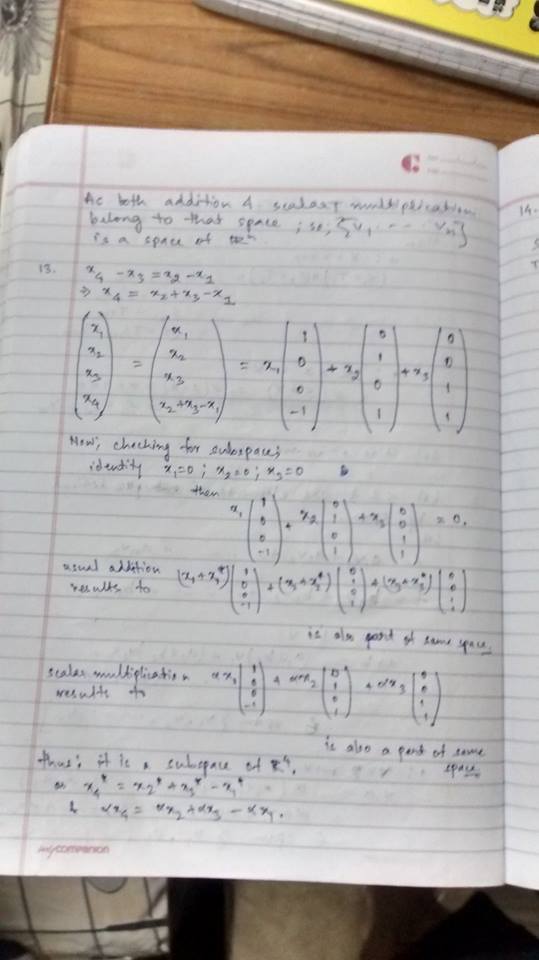 As both addition & scalar multiplication
belong to that space ; so, {v₁ - - - - vₙ}
is a space of ℝⁿ
13. x₄ - x₃ = x₂ - x₁
⇒ x₄ = x₂ + x₃ - x₁
(x₁ x₂ x₃ x₄) = (x₁ x₂ x₃ x₂+x₃-x₁) = x₁ (1 0 0 -1) + x₂ (0 1 0 1) + x₃ (0 0 1 1)
Now; checking for subspace;
identity x₁=0 ; x₂=0 ; x₃=0
then
x₁ (1 0 0 -1) + x₂ (0 1 0 1) + x₃ (0 0 1 1) = 0.
usual addition
results to (x₁+x₁*) (1 0 0 -1) + (x₂+x₂*) (0 1 0 1) + (x₃+x₃*) (0 0 1 1)
is also part of same space.
scalar multiplication
results to αx₁ (1 0 0 -1) + αx₂ (0 1 0 1) + αx₃ (0 0 1 1)
is also a part of same
space.
thus; it is a subspace of ℝ⁴.
x₄* = x₂* + x₃* - x₁*
& αx₄ = αx₂ + αx₃ - αx₁.
mycompanion
14.